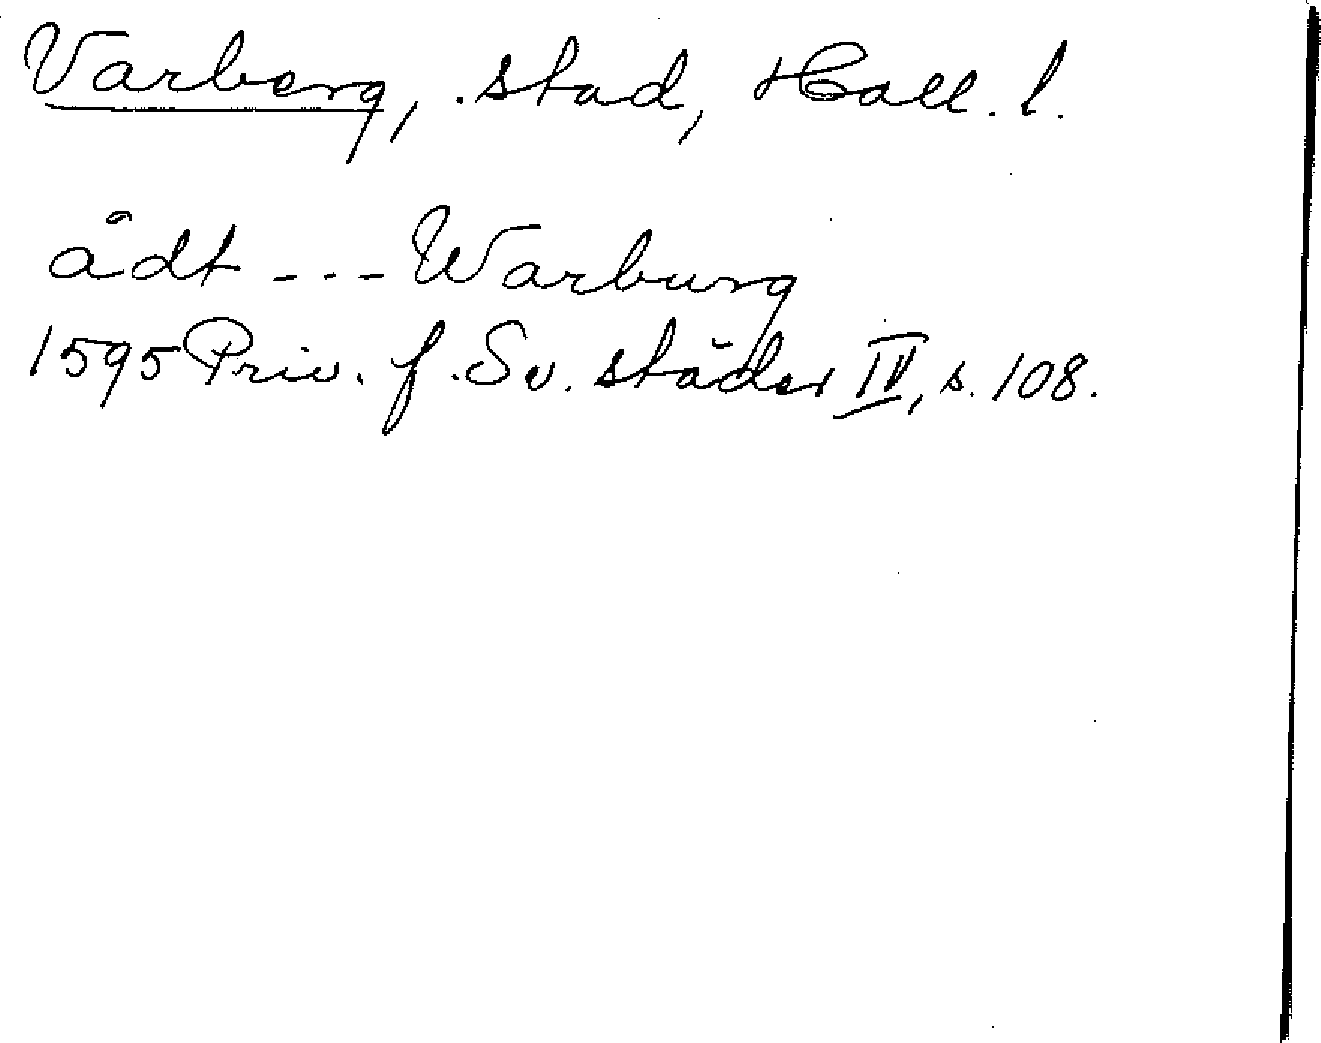 Varberg, stad, Hall. l.
ådt --- Warburg
1595 Priv. f. Sv. städer IV, s. 108.